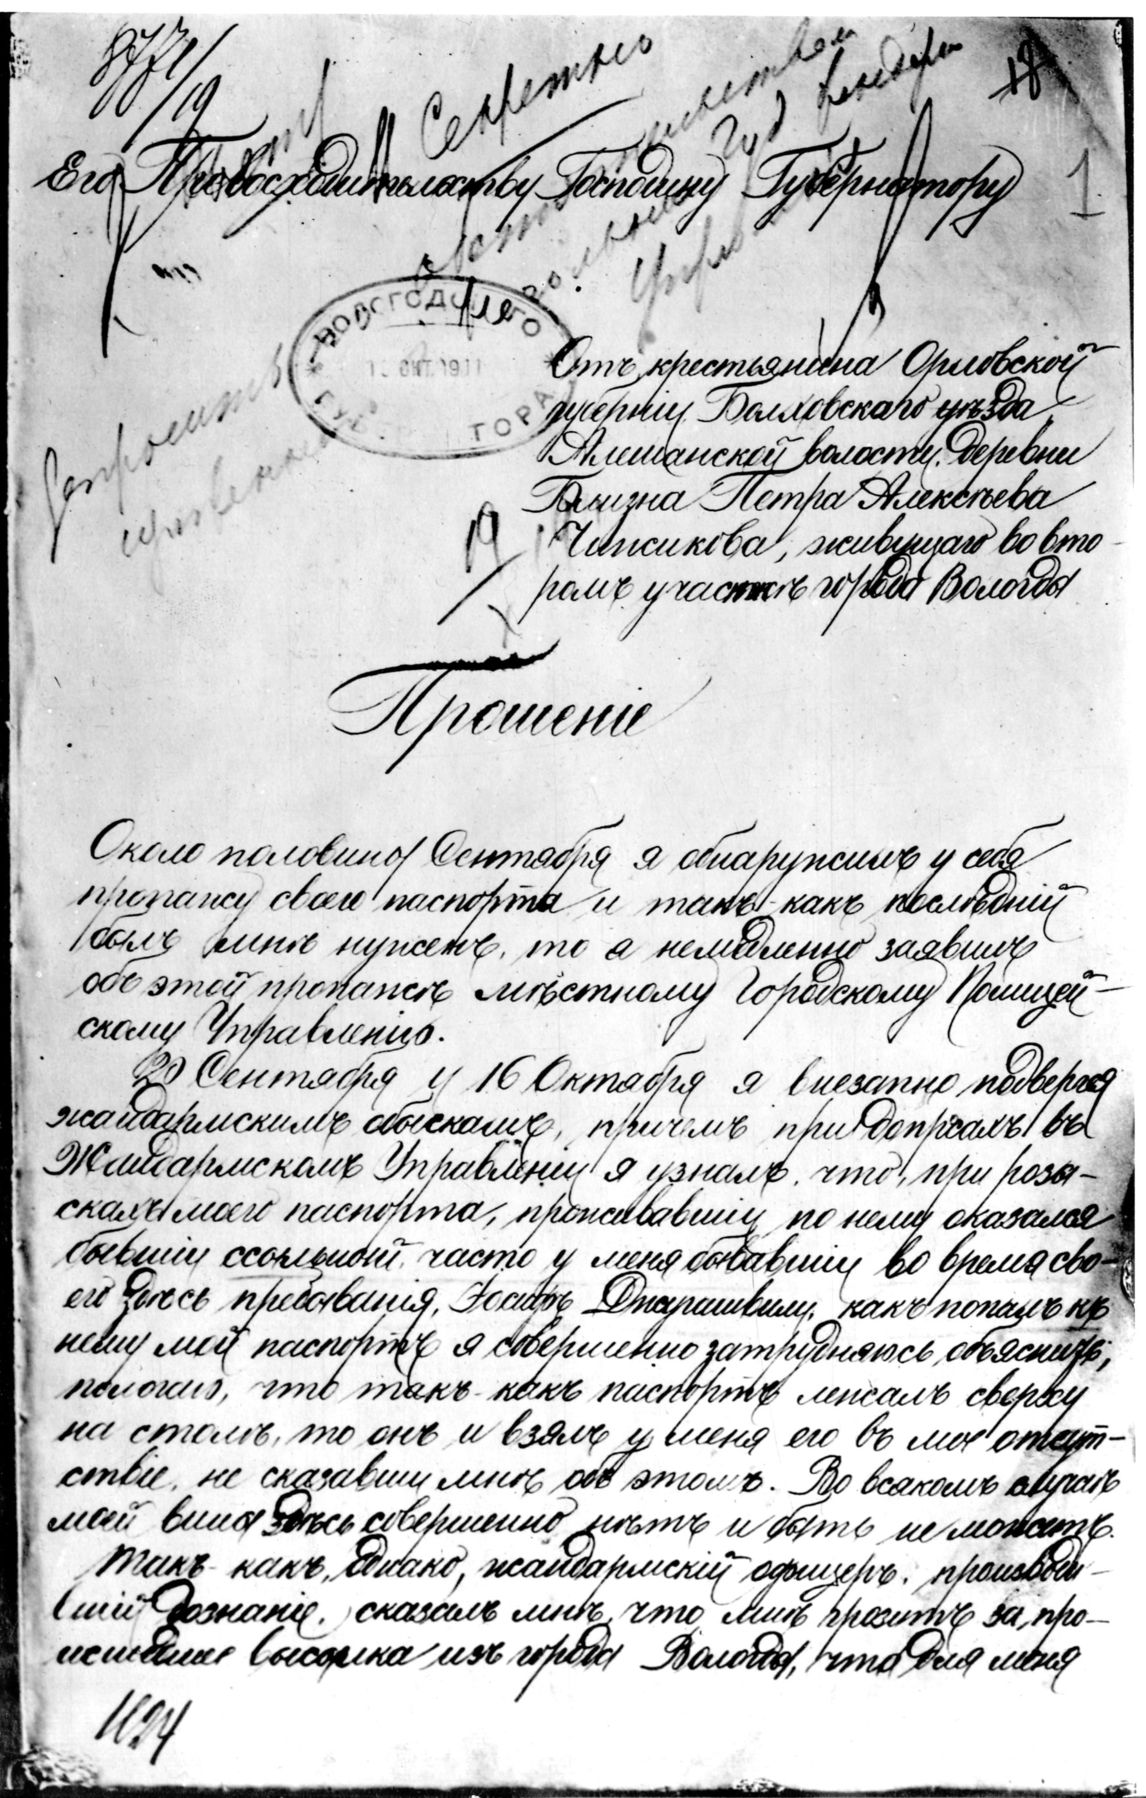 8771/19
Секретно
18
1
Его Превосходительству Господину Губернатору
ВОЛОГОДСКАГО ГУБЕРНАТОРА
ОКТ. 1911
Отъ крестьянина Орловской
губерніи Болховскаго уѣзда
Алешанской волости, деревни
Близна Петра Алексѣева
Чижикова, живущаго во вто-
ромъ участкѣ города Вологды
19
Прошеніе
Около половины Сентября я обнаружилъ у себя
пропажу своего паспорта и такъ какъ послѣдній
былъ мнѣ нуженъ, то я немедленно заявилъ
объ этой пропажѣ мѣстному Городскому Полицей-
скому Управленію.
20 Сентября и 16 Октября я внезапно подвергся
жандармскимъ обыскамъ, причемъ при допросахъ въ
Жандармскомъ Управленіи я узналъ, что, при розы-
скахъ моего паспорта, проживавшій по нему оказался
бывшій ссыльный, часто у меня бывавшій во время сво-
его здѣсь пребыванія, Іосифъ Джугашвили; какъ попалъ къ
нему мой паспортъ я совершенно затрудняюсь объяснить;
полагаю, что такъ какъ паспортъ лежалъ сверху
на столѣ, то онъ и взялъ у меня его въ мое отсут-
ствіе, не сказавши мнѣ объ этомъ. Во всякомъ случаѣ
моей вины здѣсь совершенно нѣтъ и быть не можетъ.
Такъ какъ, однако, жандармскій офицеръ, производи-
вшій дознаніе, сказалъ мнѣ, что мнѣ грозитъ за про-
исшедшее высылка изъ города Вологды, что для меня
1124